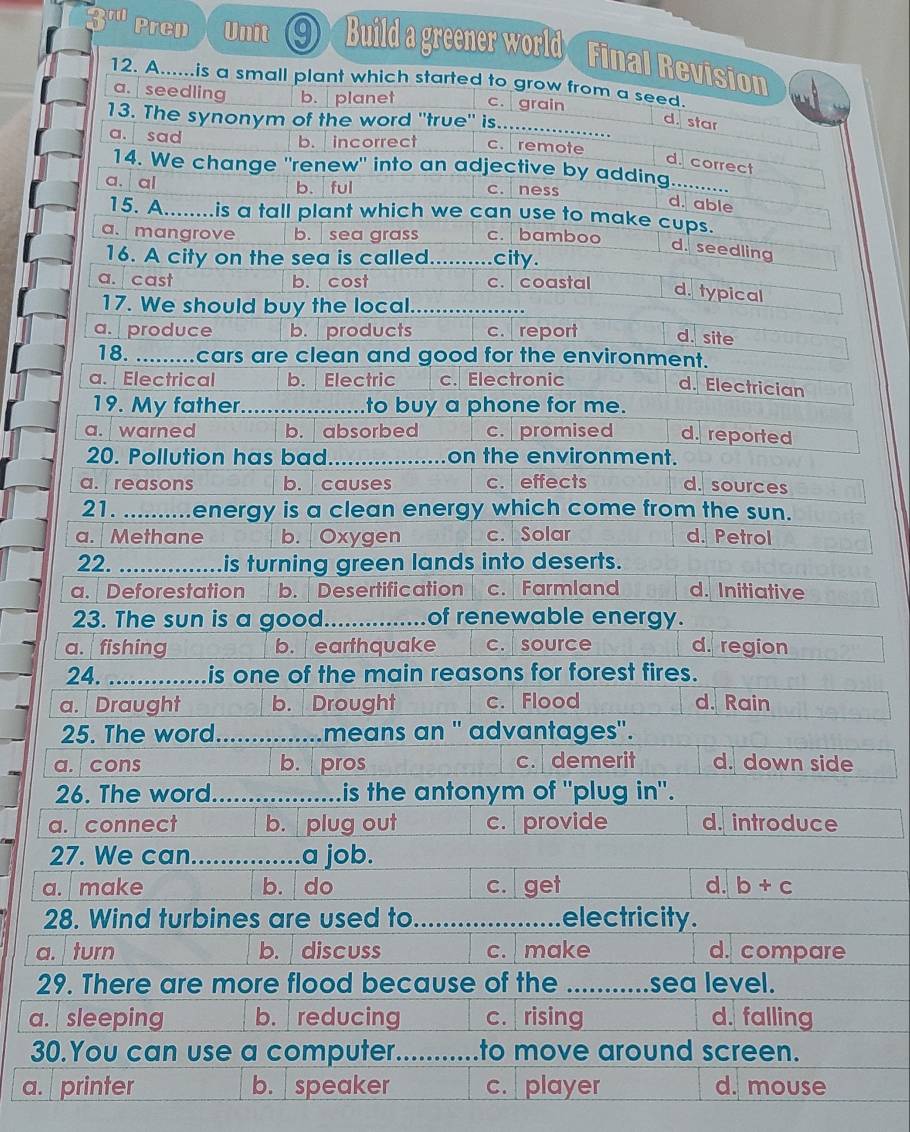 3rd Prep Unit 9 Build a greener world Final Revision
12. A......is a small plant which started to grow from a seed.
a. seedling b. planet c. grain d. star
13. The synonym of the word "true" is....................
a. sad b. incorrect c. remote d. correct
14. We change "renew" into an adjective by adding..........
a. al b. ful c. ness d. able
15. A........is a tall plant which we can use to make cups.
a. mangrove b. sea grass c. bamboo d. seedling
16. A city on the sea is called..........city.
a. cast b. cost c. coastal d. typical
17. We should buy the local..................
a. produce b. products c. report d. site
18. .........cars are clean and good for the environment.
a. Electrical b. Electric c. Electronic d. Electrician
19. My father....................to buy a phone for me.
a. warned b. absorbed c. promised d. reported
20. Pollution has bad..................on the environment.
a. reasons b. causes c. effects d. sources
21. ..........energy is a clean energy which come from the sun.
a. Methane b. Oxygen c. Solar d. Petrol
22. ...............is turning green lands into deserts.
a. Deforestation b. Desertification c. Farmland d. Initiative
23. The sun is a good...............of renewable energy.
a. fishing b. earthquake c. source d. region
24. ..............is one of the main reasons for forest fires.
a. Draught b. Drought c. Flood d. Rain
25. The word...............means an " advantages".
a. cons b. pros c. demerit d. down side
26. The word..................is the antonym of "plug in".
a. connect b. plug out c. provide d. introduce
27. We can...............a job.
a. make b. do c. get d. b + c
28. Wind turbines are used to....................electricity.
a. turn b. discuss c. make d. compare
29. There are more flood because of the ...........sea level.
a. sleeping b. reducing c. rising d. falling
30.You can use a computer...........to move around screen.
a. printer b. speaker c. player d. mouse